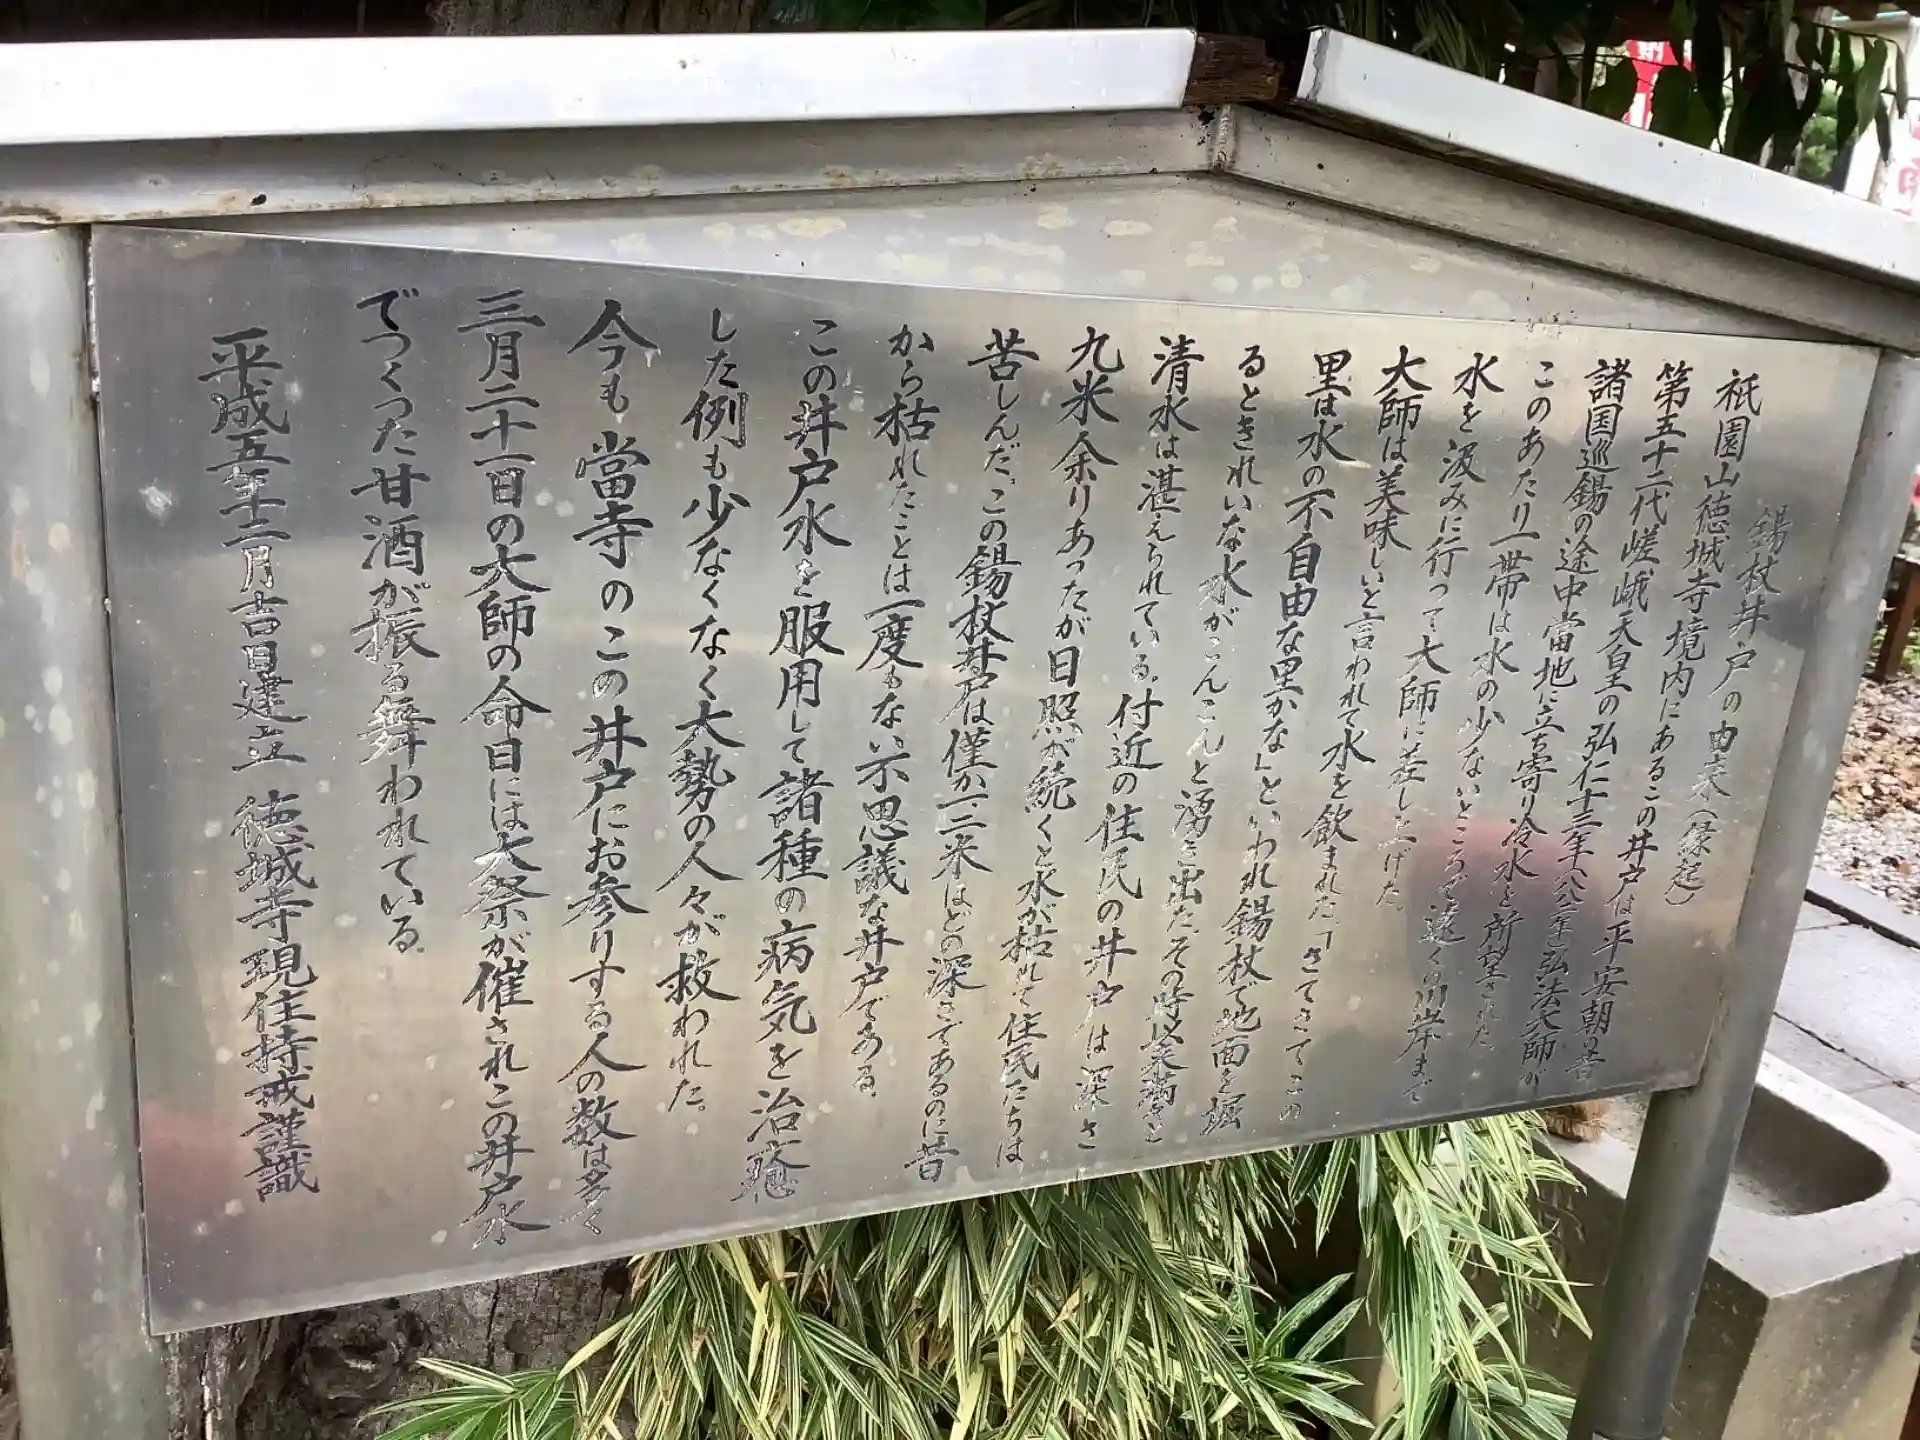 錫杖井戸の由来(縁起)
祇園山徳城寺境内にあるこの井戸は平安朝の昔
第五十二代嵯峨天皇の弘仁十三年(八二二年)弘法大師が
諸国巡錫の途中當地に立ち寄り冷水を所望された。
このあたり一帯は水の少ないところで遠くの川岸まで
水を汲みに行って大師に差し上げた。
大師は美味しいと言われて水を飲まれた。「さてさてこの
里は水の不自由な里かな」といわれ錫杖で地面を堀
るときれいな水がこんこんと湧き出た。その時以来満々と
清水は湛えられている。付近の住民の井戸は深さ
九米余りあったが日照が続くと水が枯れて住民たちは
苦しんだ。この錫杖井戸は僅か一、二米ほどの深さであるのに昔
から枯れたことは一度もない不思議な井戸である。
この井戸水を服用して諸種の病気を治癒
した例も少なくなく大勢の人々が救われた。
今も當寺のこの井戸にお参りする人の数は多く
三月二十一日の大師の命日には大祭が催されこの井戸水
でつくった甘酒が振る舞われている。
平成五年二月吉日建立 徳城寺現住持戒謹識